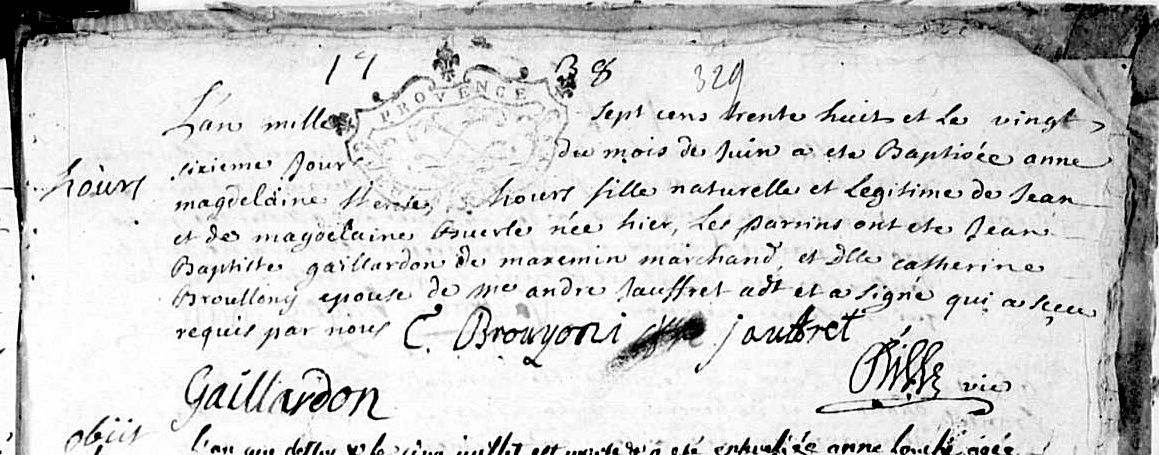 17 38 329
PROVENCE
L'an mille sept cens trente huit et le vingt
sixieme Jour du mois de Juin a ete Baptisée anne
hours
magdelaine therese hours fille naturelle et Legitime de Jean
et de magdelaine Buerle née hier, Les parrins ont ete Jean
Baptiste gaillardon de maxemin marchand, et Dlle catherine
Broullony epouse de me andre Jauffret adt et a signé qui a sçeu
requis par nous C. Brouyoni jauffret
Gaillardon vic
obiit
L'an que dessus & le cinq juillet est a été ensevelie anne agée